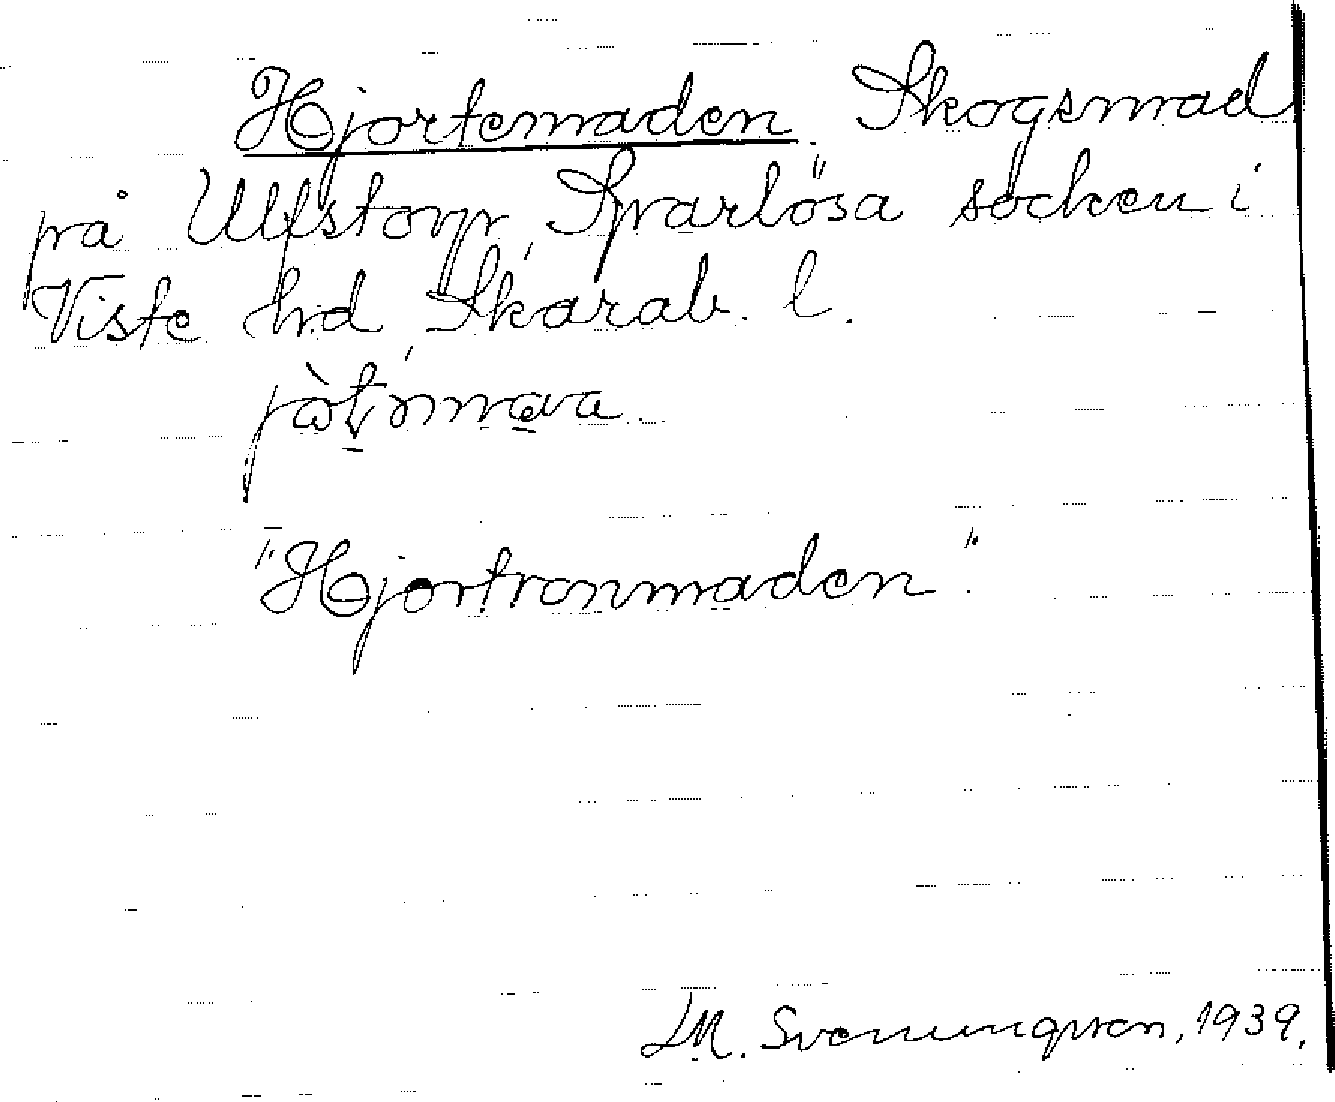 Hjortemaden. Skogsmad
på Ulfstorp, Sparlösa socken i
Viste hrd Skarab. l.

"Hjortronmaden".
M. Svenungsson, 1939.